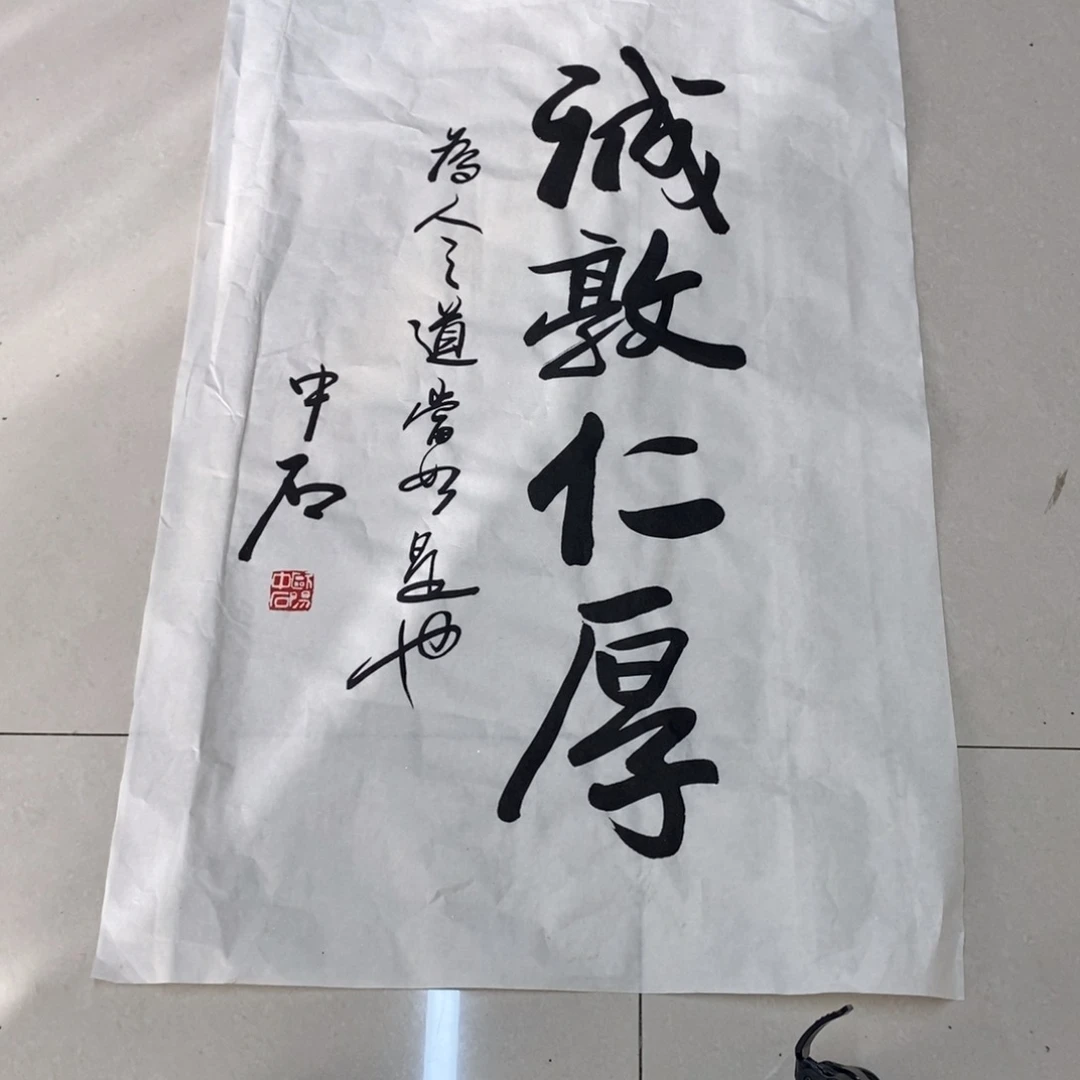 誠敦仁厚
為人之道當如是也
中石
歐陽中石